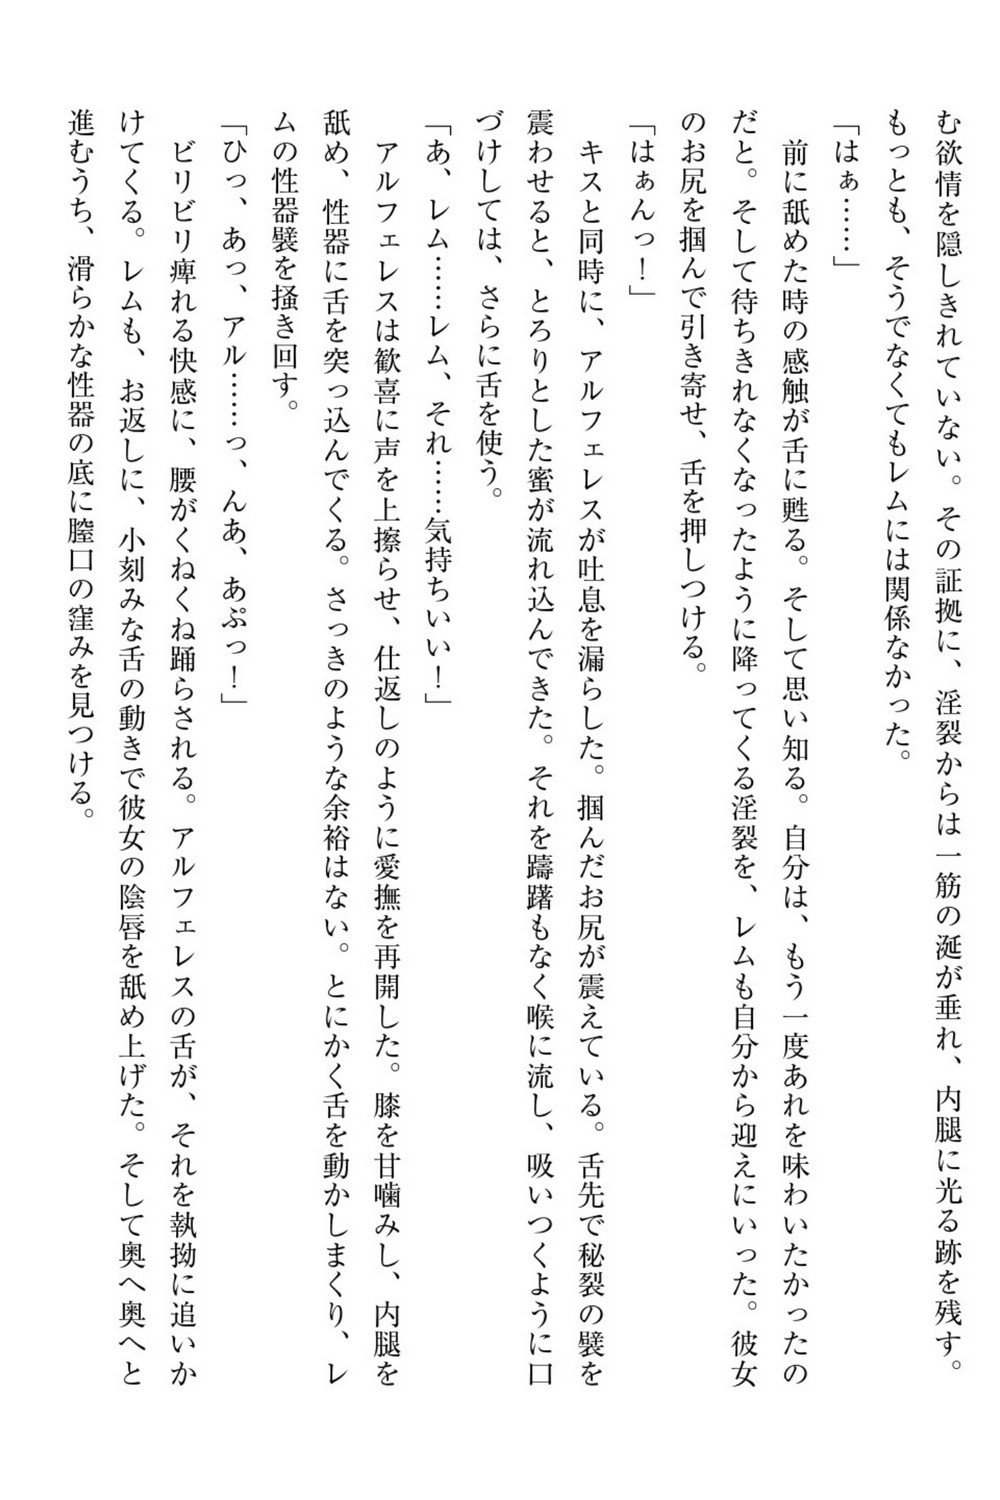 む欲情を隠しきれていない。その証拠に、淫裂からは一筋の涎が垂れ、内腿に光る跡を残す。
もっとも、そうでなくてもレムには関係なかった。
「はぁ……」
前に舐めた時の感触が舌に甦る。そして思い知る。自分は、もう一度あれを味わいたかったの
だと。そして待ちきれなくなったように降ってくる淫裂を、レムも自分から迎えにいった。彼女
のお尻を掴んで引き寄せ、舌を押しつける。
「はぁんっ！」
キスと同時に、アルフェレスが吐息を漏らした。掴んだお尻が震えている。舌先で秘裂の襞を
震わせると、とろりとした蜜が流れ込んできた。それを躊躇もなく喉に流し、吸いつくように口
づけしては、さらに舌を使う。
「あ、レム……レム、それ……気持ちいい！」
アルフェレスは歓喜に声を上擦らせ、仕返しのように愛撫を再開した。膝を甘噛みし、内腿を
舐め、性器に舌を突っ込んでくる。さっきのような余裕はない。とにかく舌を動かしまくり、レ
ムの性器襞を掻き回す。
「ひっ、あっ、アル……っ、んあ、あぷっ！」
ビリビリ痺れる快感に、腰がくねくね踊らされる。アルフェレスの舌が、それを執拗に追いか
けてくる。レムも、お返しに、小刻みな舌の動きで彼女の陰唇を舐め上げた。そして奥へ奥へと
進むうち、滑らかな性器の底に膣口の窪みを見つける。